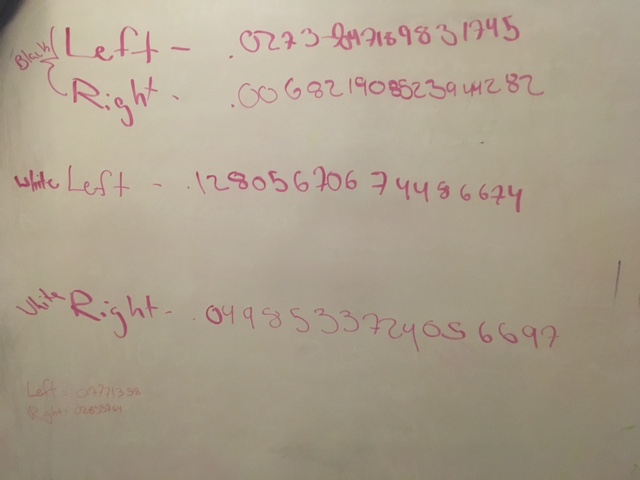 Black { Left - .0273 847189831745
Right - .006821908523944282
White Left - .12805670674486674
White Right - .0498533724056697
Left -
Right -